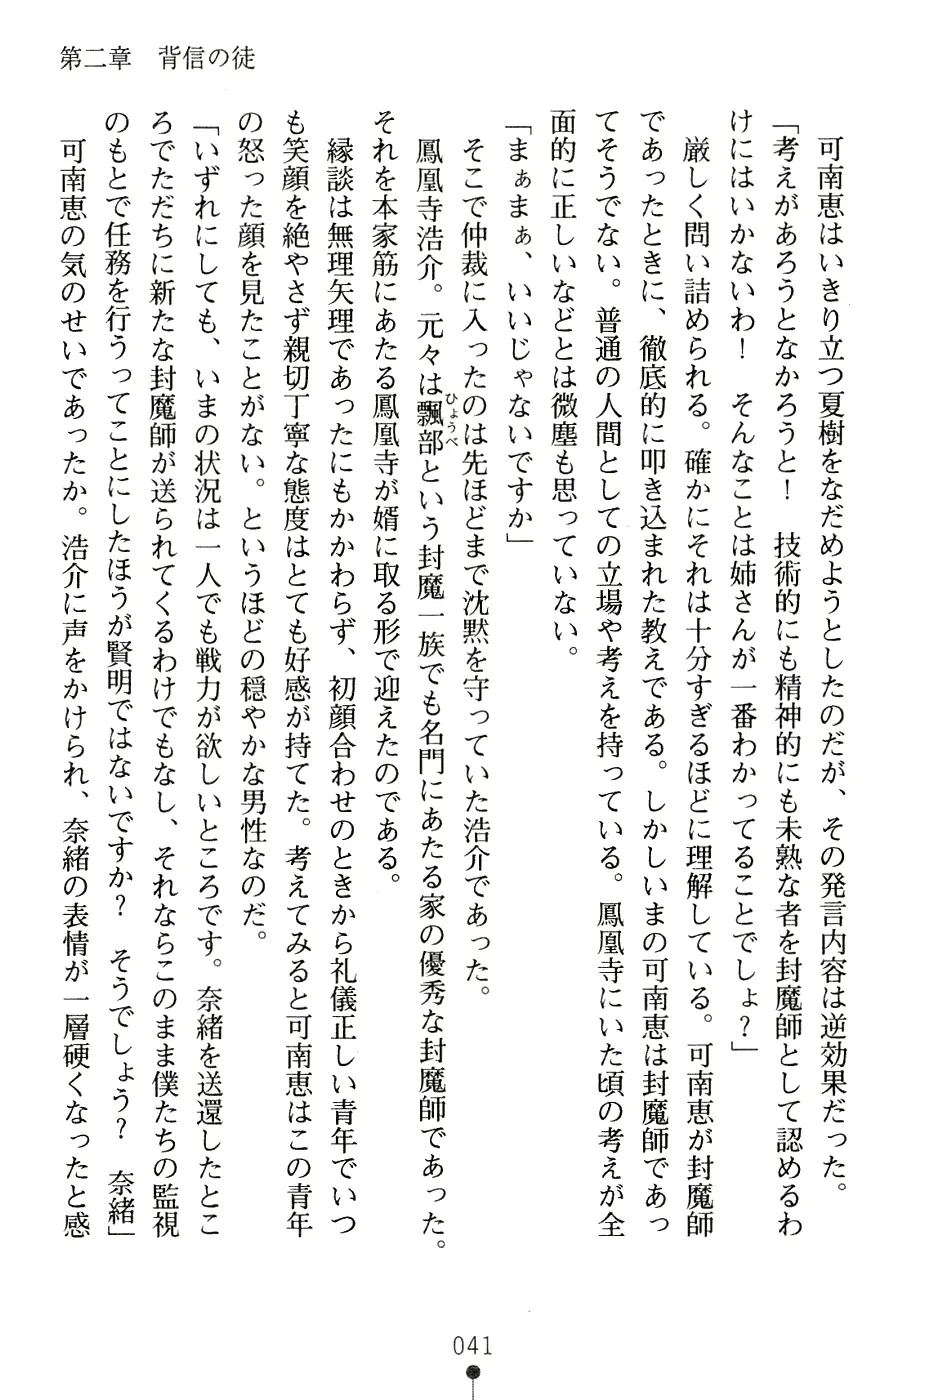 第二章　背信の徒
　可南恵はいきり立つ夏樹をなだめようとしたのだが、その発言内容は逆効果だった。
「考えがあろうとなかろうと！　技術的にも精神的にも未熟な者を封魔師として認めるわ
けにはいかないわ！　そんなことは姉さんが一番わかってることでしょ？」
　厳しく問い詰められる。確かにそれは十分すぎるほどに理解している。可南恵が封魔師
であったときに、徹底的に叩き込まれた教えである。しかしいまの可南恵は封魔師であっ
てそうでない。普通の人間としての立場や考えを持っている。鳳凰寺にいた頃の考えが全
面的に正しいなどとは微塵も思っていない。
「まぁまぁ、いいじゃないですか」
　そこで仲裁に入ったのは先ほどまで沈黙を守っていた浩介であった。
　鳳凰寺浩介。元々は飄部という封魔一族でも名門にあたる家の優秀な封魔師であった。
ひょうべ
それを本家筋にあたる鳳凰寺が婿に取る形で迎えたのである。
　縁談は無理矢理であったにもかかわらず、初顔合わせのときから礼儀正しい青年でいつ
も笑顔を絶やさず親切丁寧な態度はとても好感が持てた。考えてみると可南恵はこの青年
の怒った顔を見たことがない。というほどの穏やかな男性なのだ。
「いずれにしても、いまの状況は一人でも戦力が欲しいところです。奈緒を送還したとこ
ろでただちに新たな封魔師が送られてくるわけでもなし、それならこのまま僕たちの監視
のもとで任務を行うってことにしたほうが賢明ではないですか？　そうでしょう？　奈緒」
　可南恵の気のせいであったか。浩介に声をかけられ、奈緒の表情が一層硬くなったと感
041